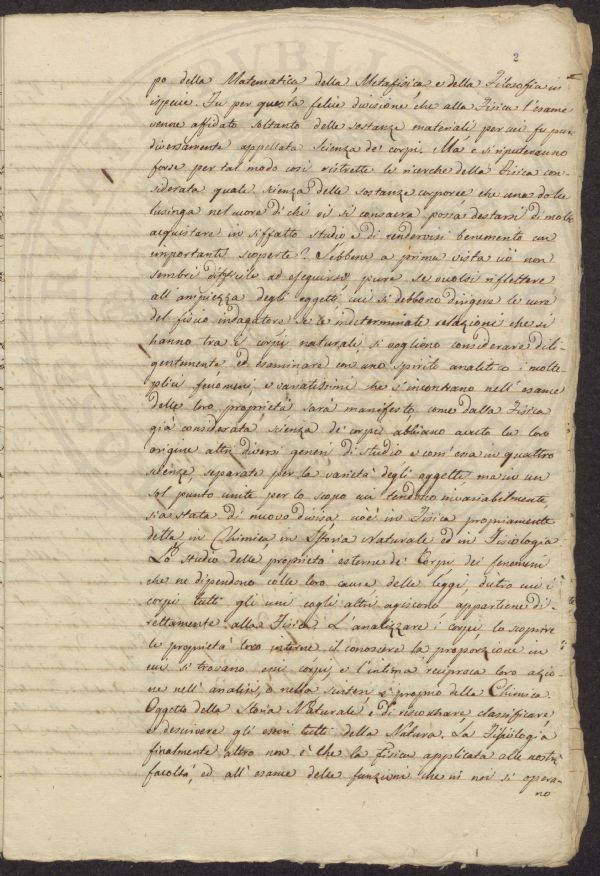 2
po della Matematica, della Metafisica e della Filosofia in
ispecie. Fu per questa felice divisione che alla Fisica l'esame
venne affidato soltanto delle sostanze materiali per cui fu pur
diversamente appellata Scienza de' corpi. Ma e si riputeranno
forse per tal modo così ristrette le ricerche della Fisica con-
siderata quale scienza delle sostanze corporee che una dolce
lusinga nel cuore di chi vi si consacra possa destarsi di molto
acquistare in siffatto studio e di rendervisi benemerito con
importanti scoperte? Sebbene a prima vista ciò non
sembri difficile ad eseguirsi, pure se vuolsi riflettere
all'ampiezza degli oggetti, cui si debbono dirigere le cure
del fisico indagatore se le indeterminate relazioni che si
hanno tra i corpi naturali si vogliono considerare dili-
gentemente ed esaminare con uno spirito analitico i molte-
plici fenomeni, e svariatissimi che s'incontrano nell'esame
delle loro proprietà sarà manifesto, come dalla Fisica
già considerata scienza de' corpi abbiano avuto la loro
origine altri diversi generi di studio e com'essa in quattro
scienze, separate per la varietà degli oggetti ma in un
sol punto unite per lo scopo cui tendono invariabilmente
sia stata di nuovo divisa cioè in Fisica propriamente
detta in Chimica in Storia Naturale ed in Fisiologia.
Lo studio delle proprietà esterne de' Corpi dei fenomeni
che ne dipendono colle loro cause delle leggi, dietro cui i
corpi tutti gli uni cogli altri agiscono appartiene di-
rettamente alla Fisica. L'analizzare i corpi, lo scoprire
le proprietà loro interne il conoscere la proporzione in
cui si trovano essi corpi, e l'intima reciproca loro azio-
ne nell'analisi, o nella sintesi è proprio della Chimica.
Oggetto della Storia Naturale è di riscontrare, classificare,
e descrivere gli esseri tutti della Natura. La Fisiologia
finalmente altro non è che la fisica applicata alle nostre
facoltà, ed all'esame delle funzioni che in noi si opera-
no